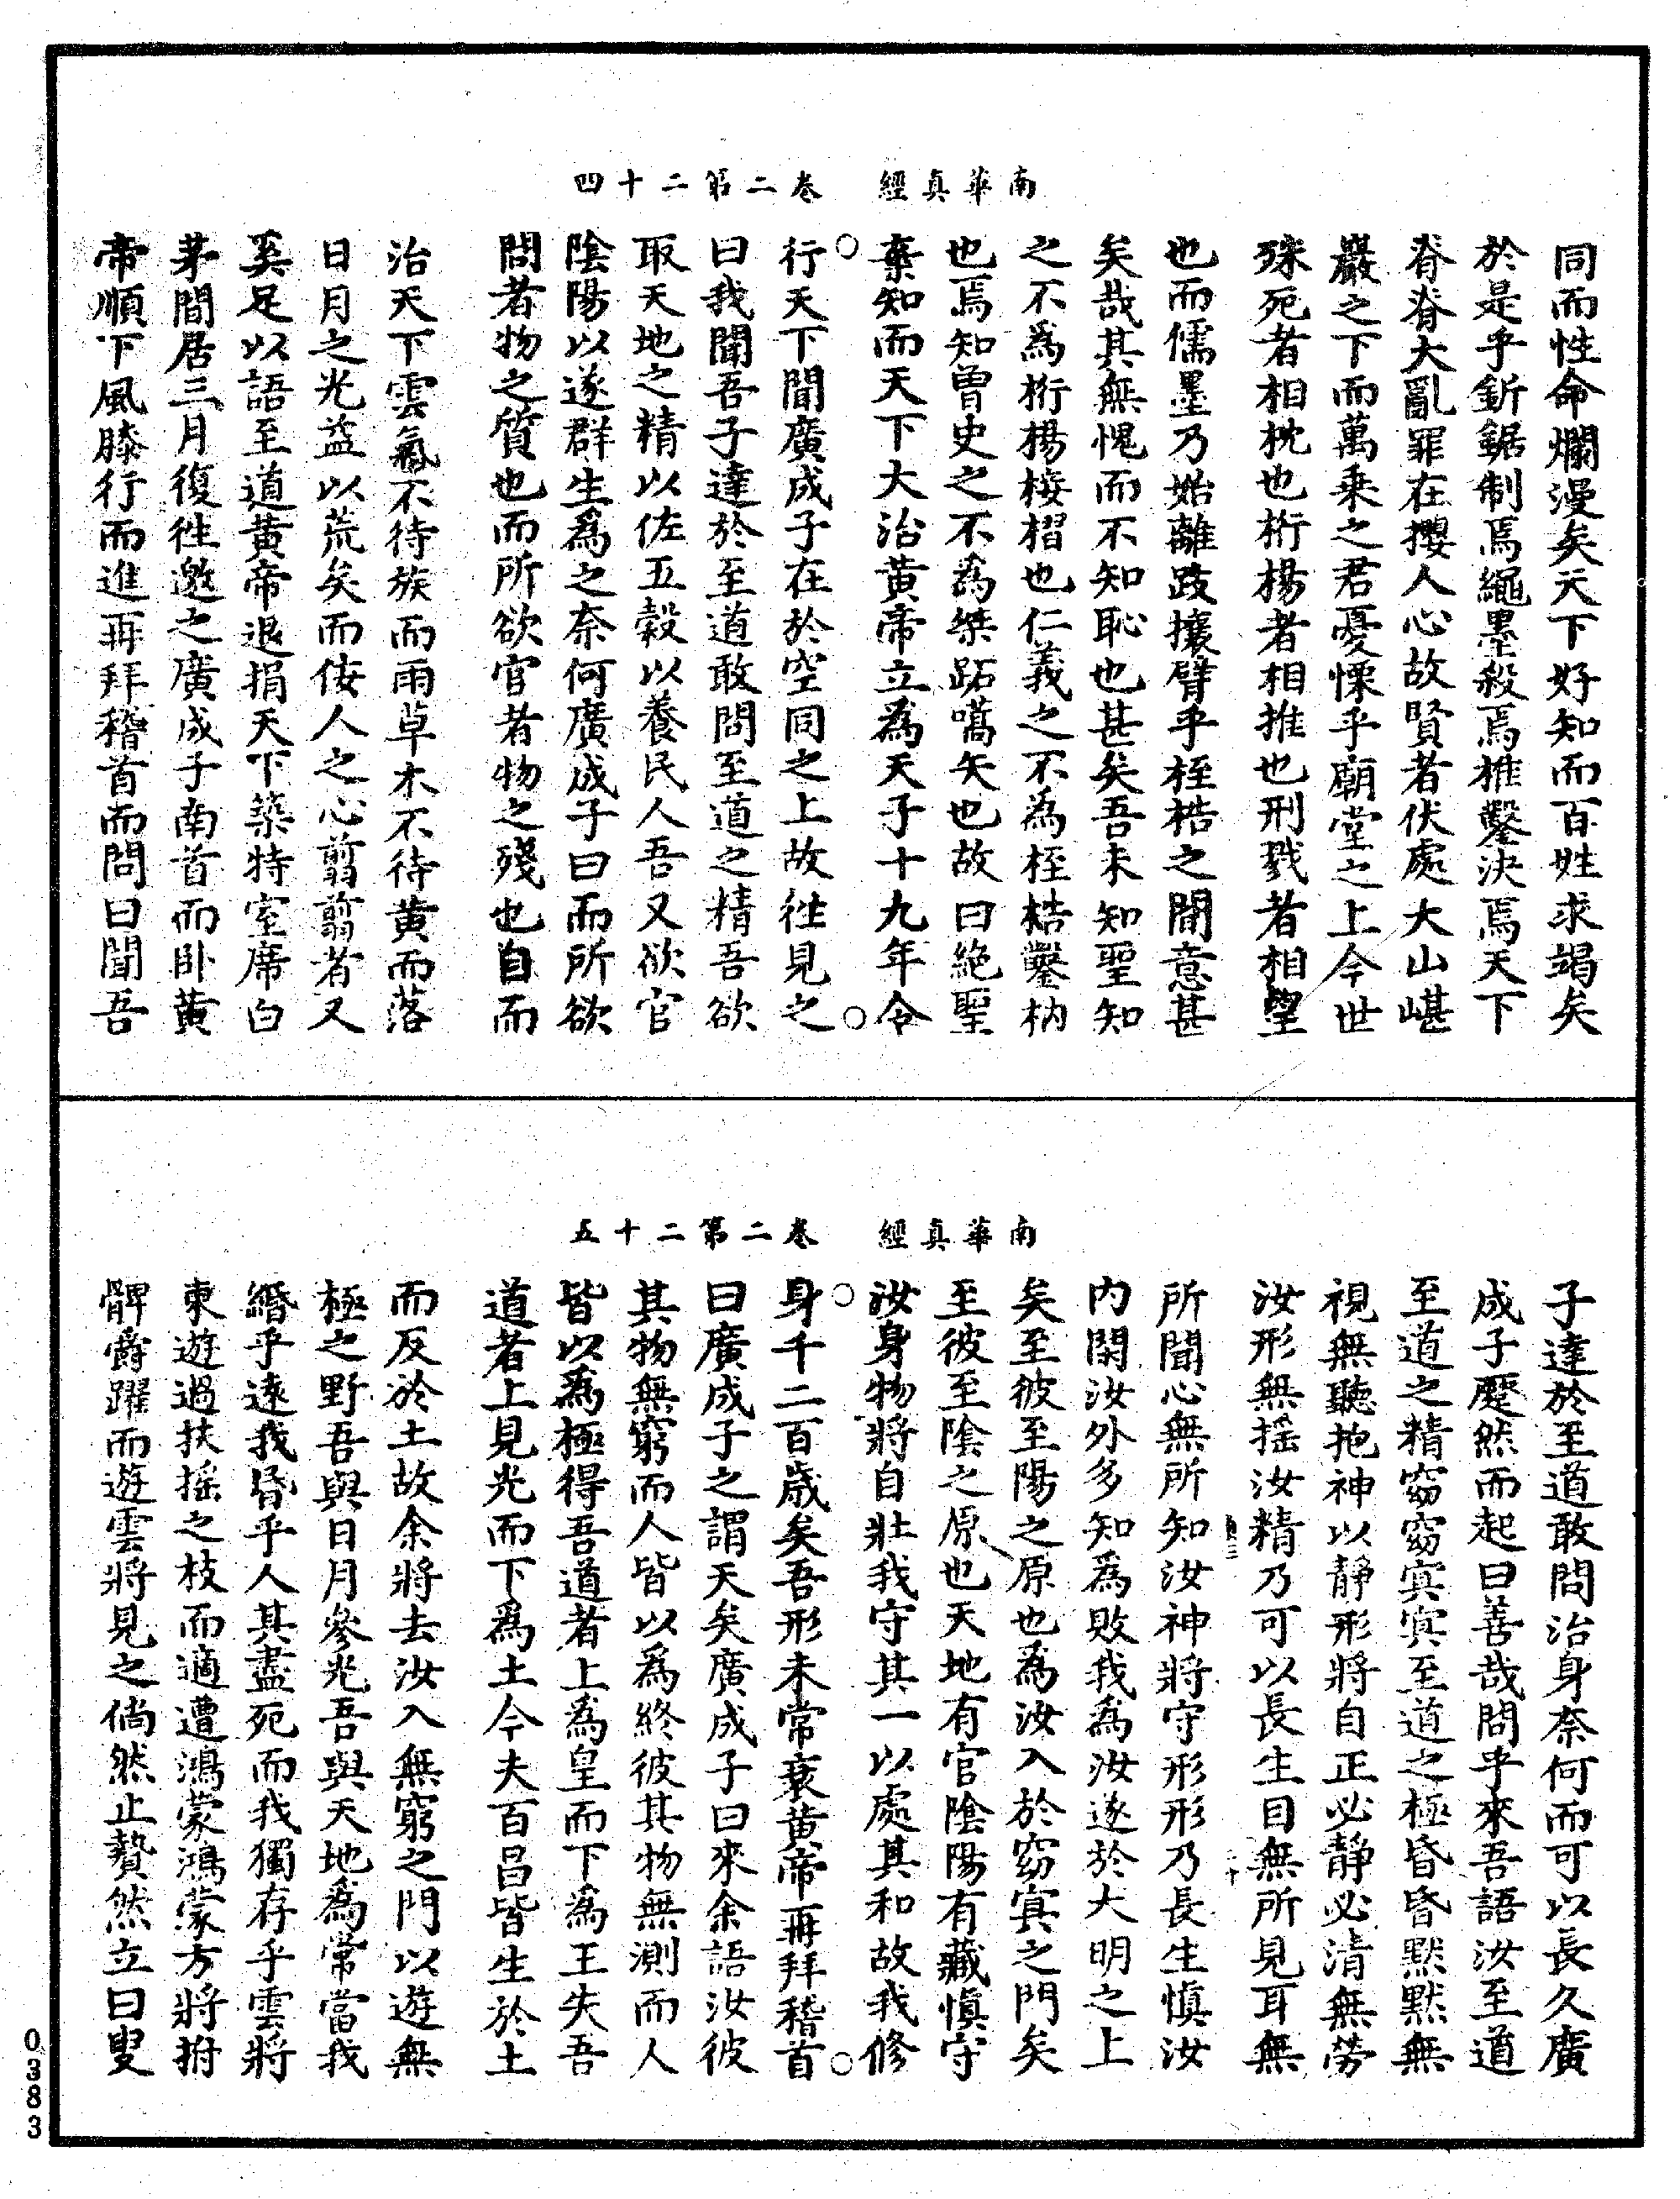 南華真經　卷二第二十四
同而性命爛漫矣天下好知而百姓求竭矣
於是乎釿鋸制焉繩墨殺焉椎鑿決焉天下
脊脊大亂罪在攖人心故賢者伏處大山嵁
巖之下而萬乘之君憂慄乎廟堂之上今世
殊死者相枕也桁楊者相推也刑戮者相望
也而儒墨乃始離跂攘臂乎桎梏之間意甚
矣哉其無愧而不知恥也甚矣吾未知聖知
之不為桁楊椄槢也仁義之不為桎梏鑿枘
也焉知曾史之不為桀跖嚆矢也故曰絶聖
棄知而天下大治黃帝立為天子十九年令
行天下聞廣成子在於空同之上故往見之
曰我聞吾子達於至道敢問至道之精吾欲
取天地之精以佐五穀以養民人吾又欲官
陰陽以遂群生爲之奈何廣成子曰而所欲
問者物之質也而所欲官者物之殘也自而
治天下雲氣不待族而雨草木不待黃而落
日月之光益以荒矣而佞人之心翦翦者又
奚足以語至道黃帝退捐天下築特室席白
茅間居三月復往邀之廣成子南首而卧黃
帝順下風膝行而進再拜稽首而問曰聞吾
南華真經　卷二第二十五
子達於至道敢問治身奈何而可以長久廣
成子蹷然而起曰善哉問乎來吾語汝至道
至道之精窈窈冥冥至道之極昏昏默默無
視無聽抱神以靜形將自正必靜必清無勞
汝形無搖汝精乃可以長生目無所見耳無
所聞心無所知汝神將守形形乃長生慎汝
内閉汝外多知爲敗我爲汝遂於大明之上
矣至彼至陽之原也爲汝入於窈冥之門矣
至彼至陰之原也天地有官陰陽有藏慎守
汝身物將自壯我守其一以處其和故我修
身千二百歲矣吾形未常衰黃帝再拜稽首
曰廣成子之謂天矣廣成子曰來余語汝彼
其物無窮而人皆以為終彼其物無測而人
皆以為極得吾道者上為皇而下為王失吾
道者上見光而下爲土今夫百昌皆生於土
而反於土故余將去汝入無窮之門以遊無
極之野吾與日月參光吾與天地爲常當我
緡乎遠我昏乎人其盡死而我獨存乎雲將
東遊過扶搖之枝而適遭鴻蒙鴻蒙方將拊
髀爵躍而遊雲將見之倘然止贄然立曰叟
0383